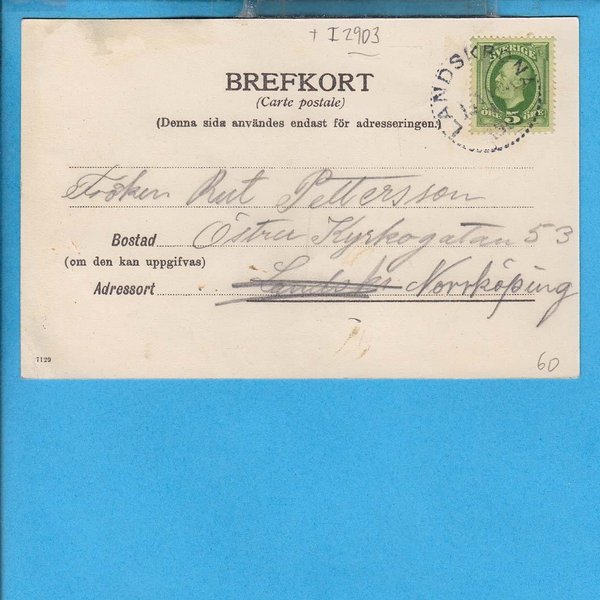 + I 2903
BREFKORT
(Carte postale)
(Denna sida användes endast för adresseringen.)
LANDSKRONA
SVERIGE
ÖRE 5 ÖRE
Fröken Rut Pettersson
Bostad Östra Kyrkogatan 53
(om den kan uppgifvas)
Adressort Norrköping
7129
60